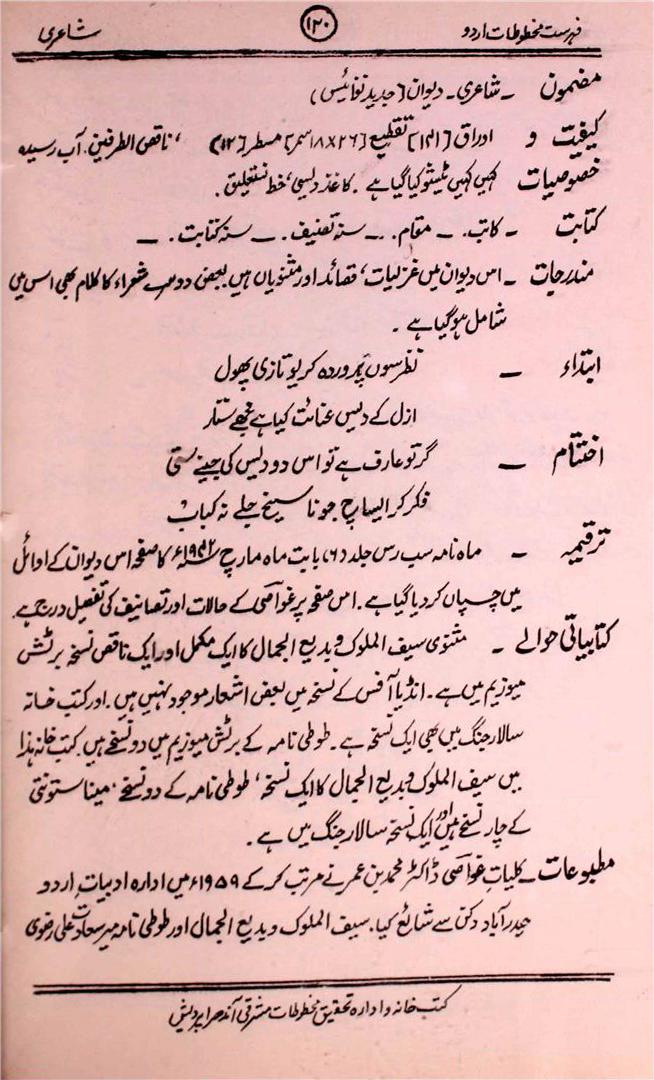 فہرست مخطوطات اردو ۱۲۰ شاعری
مضمون ۔ شاعری ۔ دیوان (جدید نفائیس)
کیفیت و اوراق [۱۴۱] تقطیع [۲۶×۱۸ سمر] مسطر [۱۲] ، ناقص الطرفین، آب رسیدہ
خصوصیات کہیں کہیں ٹیشو کیا گیا ہے ۔ کاغذ دیسی، خط نستعلیق ۔
کتابت ۔ کاتب ۔ ۔ مقام ۔ ۔ سنہ تصنیف ۔ ۔ سنہ کتابت ۔ ۔
مندرجات ۔ اس دیوان میں غزلیات، قصائد اور مثنویاں ہیں بعض دوسرے شعراء کا کلام بھی اس میں
شامل ہو گیا ہے ۔
ابتداء ۔ نظر سوں پروردہ کریو تازی پھول
ازل کے دیس عنائت کیا ہے تجھے ستار
اختتام ۔ گر تو عارف ہے تو اس دو دیس کی جینے ستی
فکر کر ایسا پچ جو نا سیخ جلے نہ کباب
ترقیمہ ۔ ماہ نامہ سب رس جلد ۶، بابت ماہ مارچ ۱۹۴۲ء کا صفحہ اس دیوان کے اوائل
میں چسپاں کر دیا گیا ہے ۔ اس صفحہ پر غواصی کے حالات اور تصانیف کی تفصیل درج ہے ۔
کتابیاتی حوالے ۔ مثنوی سیف الملوک و بدیع الجمال کا ایک مکمل اور ایک ناقص نسخہ برٹش
میوزیم میں ہے ۔ انڈیا آفس کے نسخہ میں بعض اشعار موجود نہیں ہیں ۔ اور کتب خانہ
سالار جنگ میں بھی ایک نسخہ ہے ۔ طوطی نامہ کے برٹش میوزیم میں دو نسخے ہیں ۔ کتب خانہ ہذا
میں سیف الملوک و بدیع الجمال کا ایک نسخہ، طوطی نامہ کے دو نسخے، مینا ستونتی
کے چار نسخے ہیں اور ایک نسخہ سالار جنگ میں ہے ۔
مطبوعات ۔ کلیات غواصی ڈاکٹر محمد بن عمر نے مرتب کر کے ۱۹۵۹ء میں ادارہ ادبیات اردو
حیدرآباد دکن سے شائع کیا ۔ سیف الملوک و بدیع الجمال اور طوطی نامہ میر سعادت علی رضوی
کتب خانہ و ادارہ تحقیق مخطوطات مشرقی آندھرا پردیش